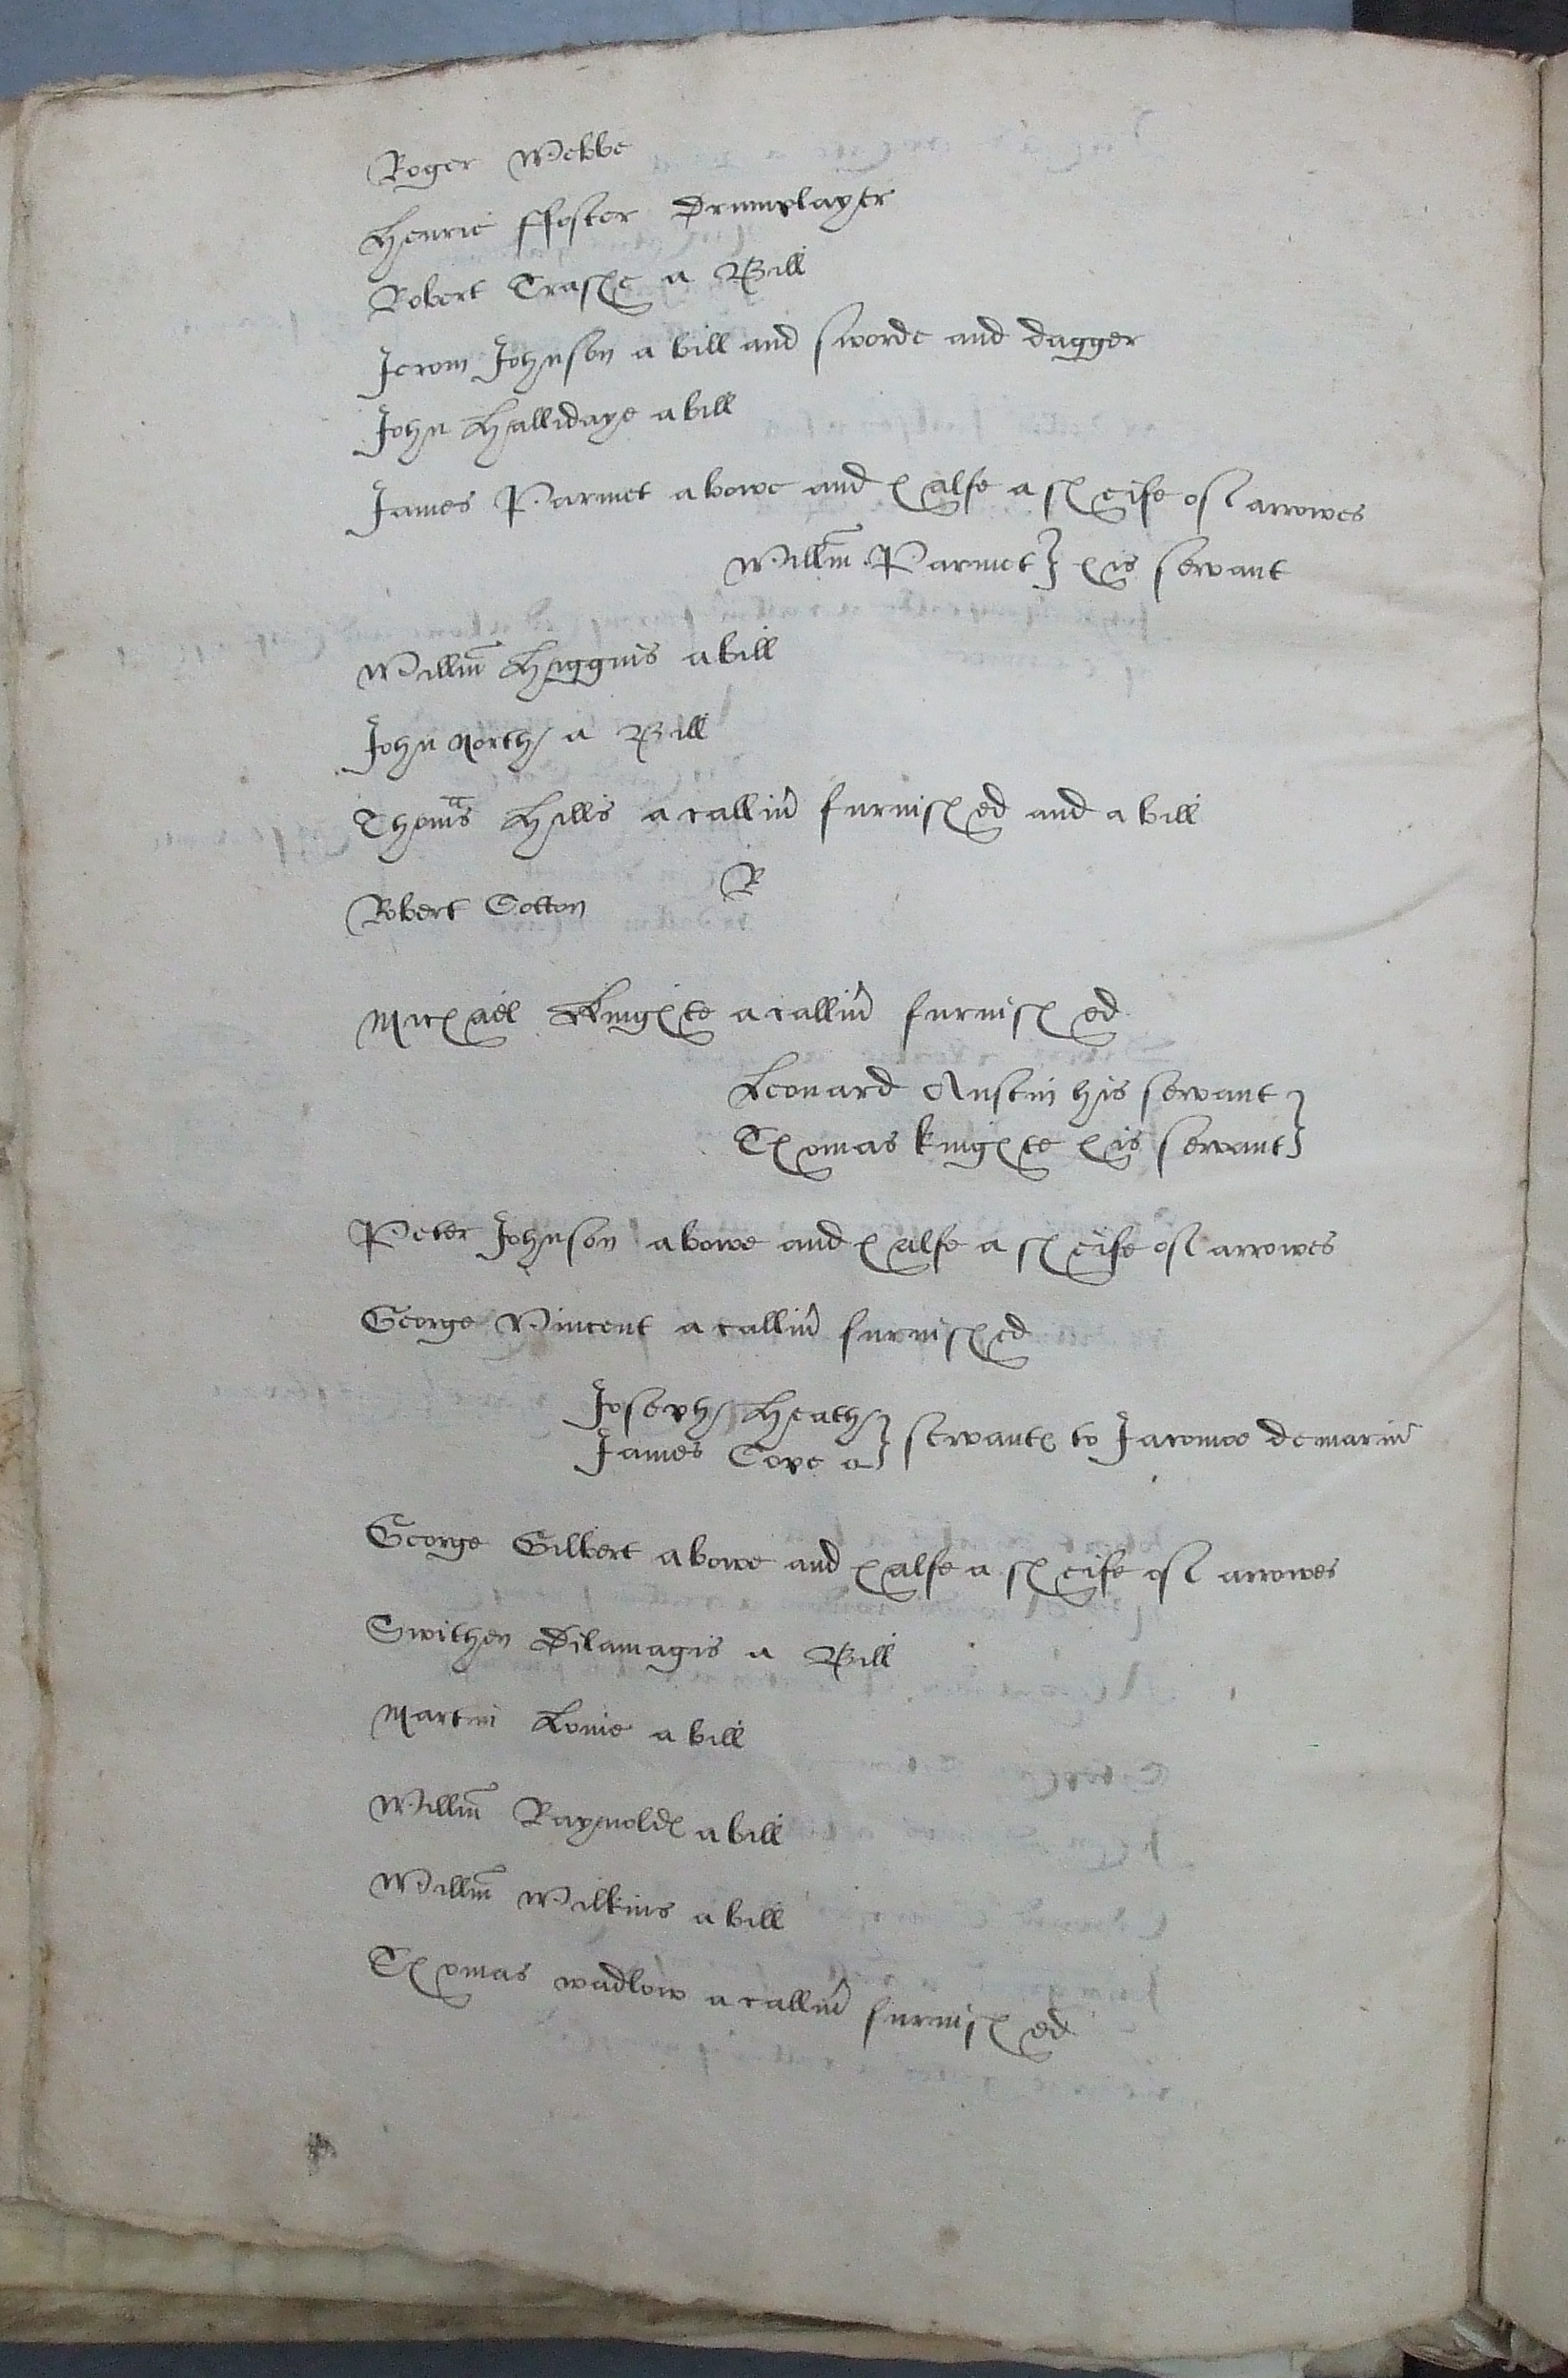 Roger Webbe
Henrie ffoster Drumplayer
Robert Trashe a Bill
Jerom Johnson a bill and sworde and dagger
John Hallidaye a bill
James Parmet a bowe and halfe a sheife of arrowes
Willm Parmet } his servant
Willm Huggins a bill
John North a Bill
Thomas Hills a calliu furnished and a bill
Robert Cotton B
Michael Knighte a calliu furnished
Leonard Austin his servant }
Thomas knighte his servant }
Peter Johnson a bowe and halfe a sheife of arrowes
George Vincent a calliu furnished
Joseph Heath }
James Cope a } servants to Jaromoe demariu
George Gilbert a bowe and halfe a sheife of arrowes
Swithen Dilamagis a Bill
Martin Lonie a bill
Willm Raynolds a bill
Willm Wilkins a bill
Thomas wadlow a calliu furnished